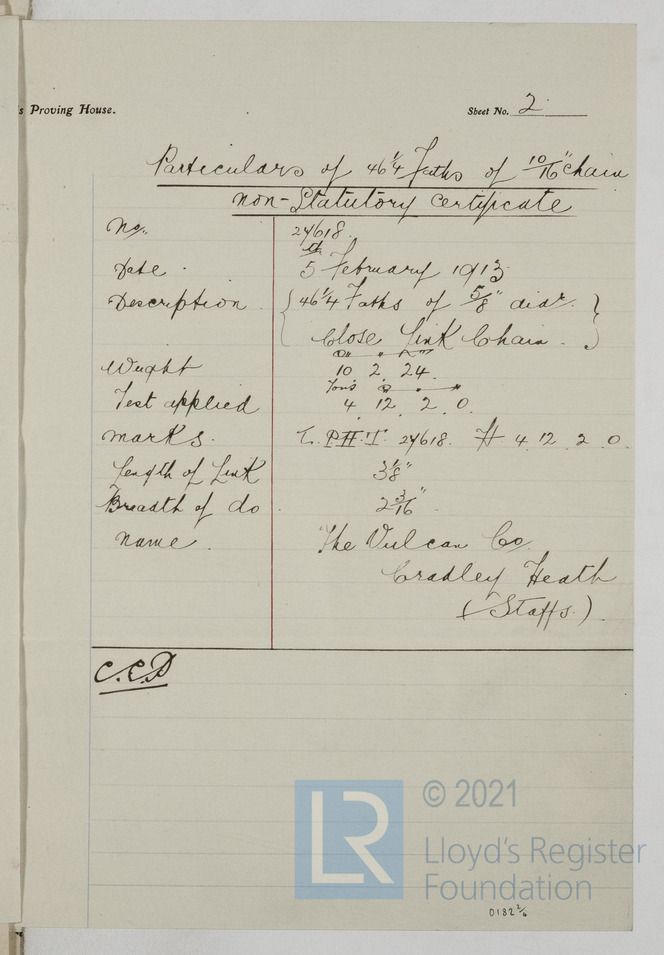 's Proving House.
Sheet No. 2
Particulars of 46 1/4 Faths of 10/16" Chain
non-Statutory Certificate
No. 24618.
Date 5th February 1913
Description 46 1/4 Faths of 5/8" diar.
Close Link Chain.
Weight 10 2 24.
Test applied Tons
4. 12. 2. 0.
Marks. L.P.H.T. 24618. H 4. 12. 2. 0.
Length of Link 3 1/8"
Breadth of do 2 3/16"
Name. The Vulcan Co.
Cradley Heath
(Staffs.)
C.C.D
LR
© 2021
Lloyd's Register
Foundation
0182 2/6